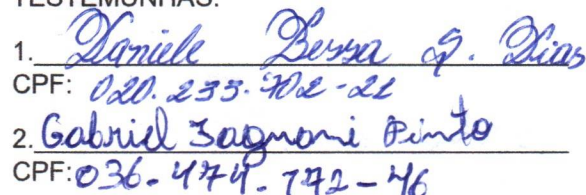 TESTEMUNHAS:
1. Daniele Bessa D. Dias
CPF: 020.233.702-21
2. Gabriel Zagnoni Pinto
CPF: 036.474.172-46